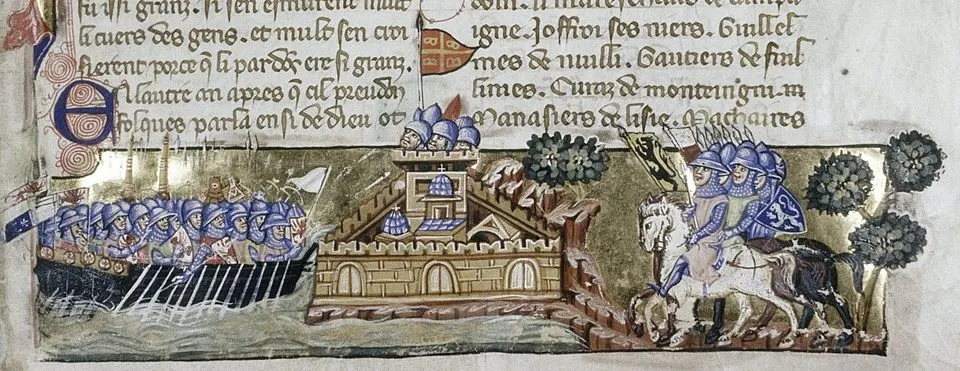 fu issi granz. Si sen esmurent mult
li cuers des gens. et mult sen croi
sierent porce q̃ li pardõs ere si granz.
En lautre an apres q̃ cil preudõ
folques parla ensi de dieu ot
li mareschaus de campa
igne. Joffroi ses niers. Guillel
mes de nuilli. Gautiers de fuil
lines. Curaz de monteingni.
Manasiers de lisle. Machaires